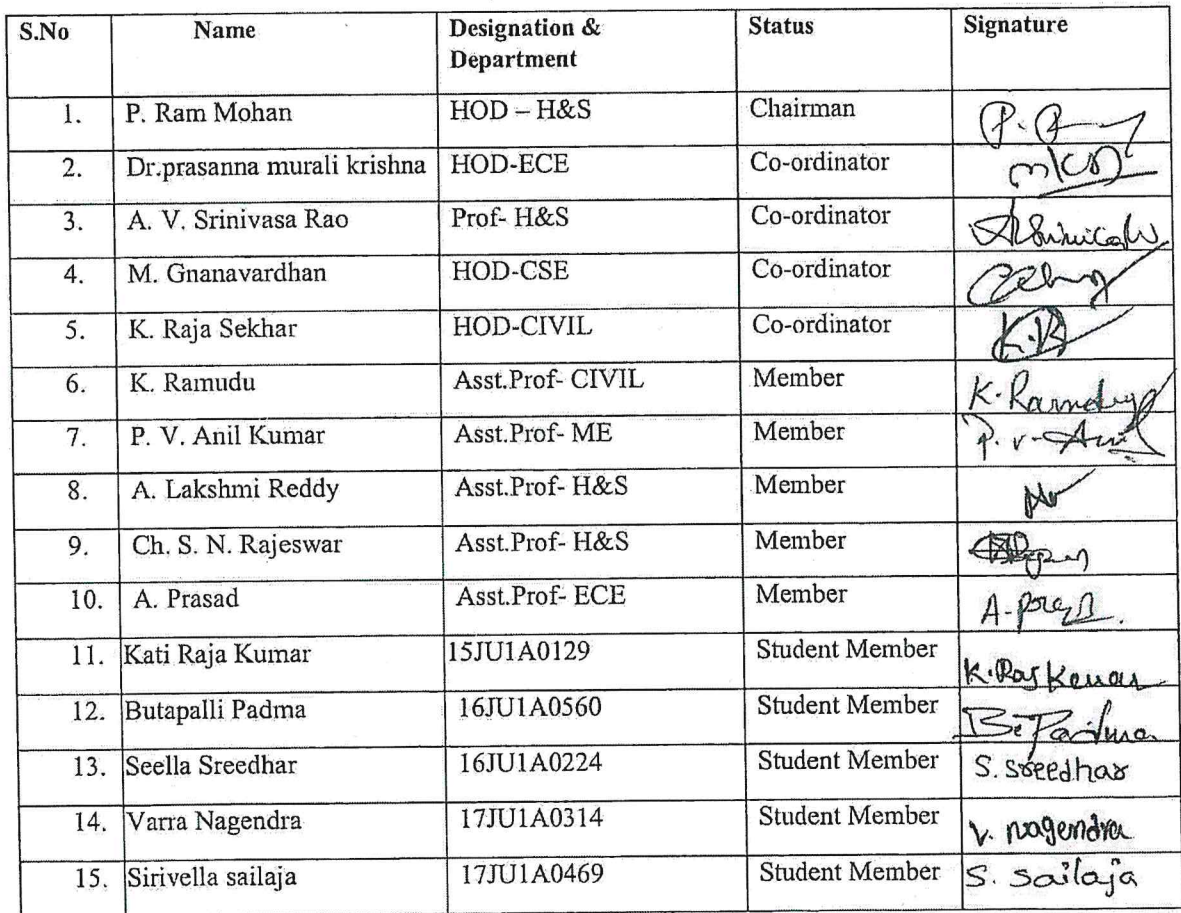 S.No Name Designation & Status Signature
Department
1. P. Ram Mohan HOD – H&S Chairman
2. Dr.prasanna murali krishna HOD-ECE Co-ordinator
3. A. V. Srinivasa Rao Prof- H&S Co-ordinator
4. M. Gnanavardhan HOD-CSE Co-ordinator
5. K. Raja Sekhar HOD-CIVIL Co-ordinator K.K
6. K. Ramudu Asst.Prof- CIVIL Member K. Ramudu
7. P. V. Anil Kumar Asst.Prof- ME Member P. V. Anil
8. A. Lakshmi Reddy Asst.Prof- H&S Member
9. Ch. S. N. Rajeswar Asst.Prof- H&S Member
10. A. Prasad Asst.Prof- ECE Member
11. Kati Raja Kumar 15JU1A0129 Student Member K. Raj Kumar
12. Butapalli Padma 16JU1A0560 Student Member B. Padma
13. Seella Sreedhar 16JU1A0224 Student Member S. Sreedhar
14. Varra Nagendra 17JU1A0314 Student Member V. nagendra
15. Sirivella sailaja 17JU1A0469 Student Member S. Sailaja